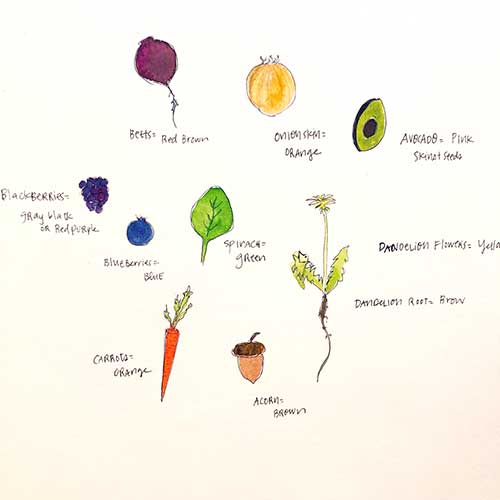 Betts= Red Brown
Onion Skin=
Orange
Avocado= Pink
Skin or Seeds
Blackberries=
Gray black
or Red purple
Blueberries=
Blue
Spinach=
green
Dandelion Flowers= Yello
Dandelion Root= Brown
Carrots=
Orange
Acorn=
Brown